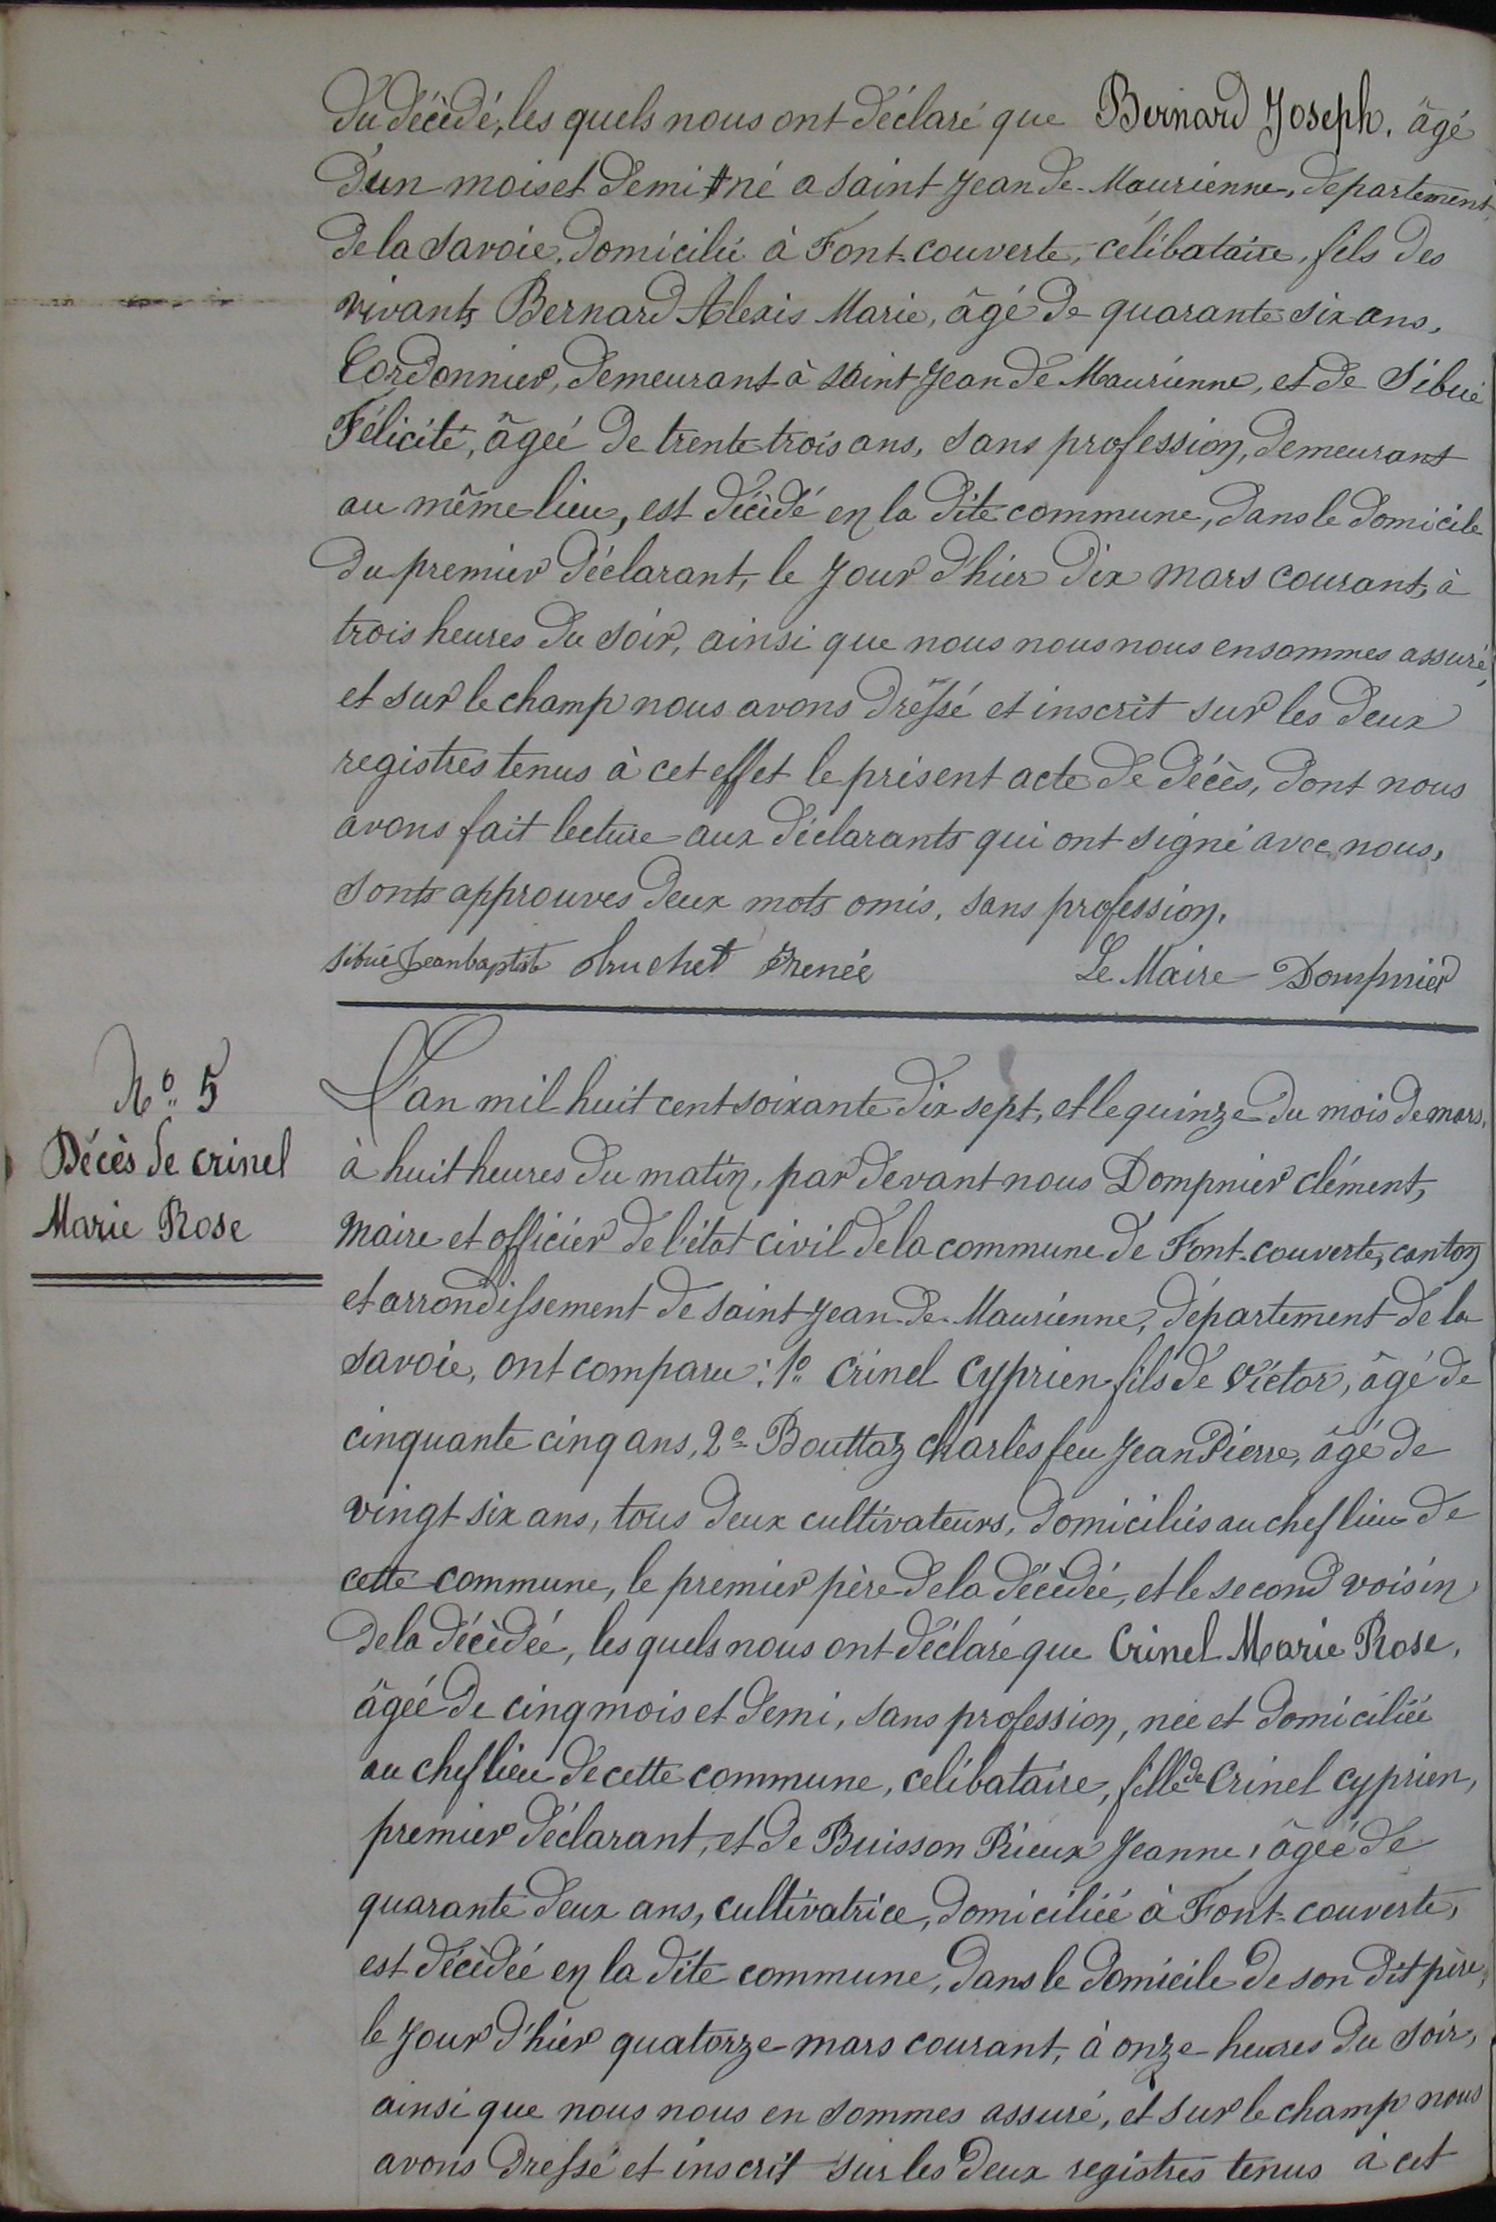 du décédé, les quels nous ont déclaré que Bernard Joseph, âgé
d'un mois et demi né a saint Jean de Maurienne, departement
de la Savoie, domicilié à Font-couverte, célibataire, fils des
vivants Bernard Alexis Marie, âgé de quarante six ans,
Cordonnier, demeurant à saint Jean de Maurienne, et de Sibué
Félicité, âgée de trente trois ans, sans profession, demeurant
au même lieu, est décédé en la dite commune, dans le domicile
du premier déclarant, le jour d'hier dix mars courant, à
trois heures du soir, ainsi que nous nous nous en sommes assuré,
et sur le champ nous avons dressé et inscrit sur les deux
registres tenus à cet effet le présent acte de décès, dont nous
avons fait lecture aux déclarants qui ont signé avec nous,
sont approuves deux mots omis, sans profession.
Sibué Jean baptiste Truchet Irenée Le Maire Dompnier
N.º 5
Décès de crinel
Marie Rose
L'an mil huit cent soixante dix sept, et le quinze du mois de mars,
à huit heures du matin, par devant nous Dompnier clément,
Maire et officier de l'état civil de la commune de Font-couverte, canton
et arrondissement de saint Jean-de-Maurienne, département de la
Savoie, ont comparu: 1º Crinel Cyprien fils de Victor, âgé de
cinquante cinq ans, 2º Bouttaz charles feu Jean Pierre, âgé de
vingt six ans, tous deux cultivateurs, domiciliés au chef lieu de
cette commune, le premier père de la décédée, et le second voisin
de la décédée, les quels nous ont déclaré que Crinel Marie Rose,
âgée de cinq mois et demi, sans profession, née et domiciliée
au chef lieu de cette commune, celibataire, fille de Crinel cyprien,
premier déclarant, et de Buisson Rieux Jeanne, âgée de
quarante deux ans, cultivatrice, domiciliée à Font-couverte,
est décédée en la dite commune, dans le domicile de son dit père,
le jour d'hier quatorze mars courant, à onze heures du soir,
ainsi que nous nous en sommes assuré, et sur le champ nous
avons dressé et inscrit sur les deux registres tenus à cet